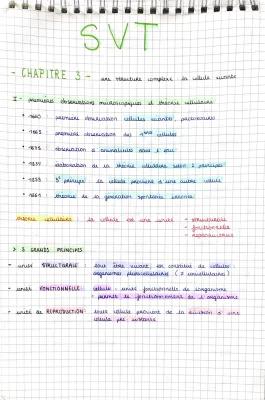 SVT
- CHAPITRE 3 - une structure complexe la cellule vivante
I - premières observations microscopiques et théorie cellulaire
première observation cellules
1665 première observation des cellules
1675 observation d'animalcules dans l'eau
élaboration de la théorie cellulaire selon 2 principes
3e principe la cellule provient d'une autre cellule
théorie de la génération spontanée
théorie cellulaire la cellule est une unité - structurale
- fonctionnelle
- reproductrice
> 3 GRANDS PRINCIPES
- unité STRUCTURALE: tout être vivant est constitué de cellules
organismes pluricellulaires (≠ unicellulaires)
- unité FONCTIONNELLE: cellule = unité fonctionnelle de l'organisme
- permet le fonctionnement de l'organisme
- unité de REPRODUCTION: toute cellule provient de la division d'une
cellule pré existante